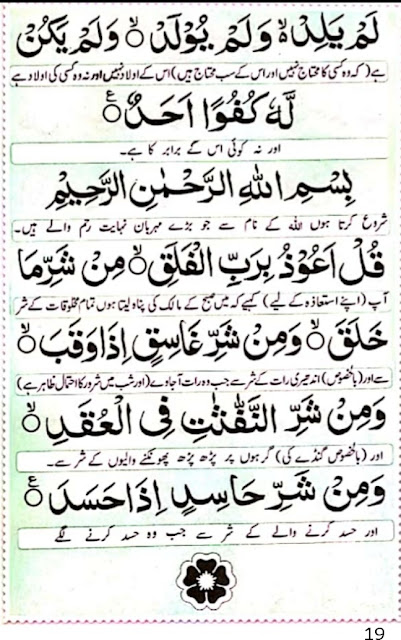 لَمْ يَلِدْ ۙ وَلَمْ يُوْلَدْ ۙ وَلَمْ يَكُنْ
ہے (کہ وہ کسی کا محتاج نہیں اور اس کے سب محتاج ہیں) اس کے اولاد نہیں اور نہ وہ کسی کی اولاد ہے
لَّهٗ كُفُوًا اَحَدٌ ۧ
اور نہ کوئی اس کے برابر کا ہے۔
بِسْمِ اللهِ الرَّحْمٰنِ الرَّحِيْمِ
شروع کرتا ہوں اللہ کے نام سے جو بڑے مہربان نہایت رحم والے ہیں۔
قُلْ اَعُوْذُ بِرَبِّ الْفَلَقِ ۙ مِنْ شَرِّ مَا
آپ (اپنے استعاذہ کے لیے) کہیے کہ میں صبح کے مالک کی پناہ لیتا ہوں تمام مخلوقات کے شر
خَلَقَ ۙ وَمِنْ شَرِّ غَاسِقٍ اِذَا وَقَبَ ۙ
سے اور (بالخصوص) اندھیری رات کے شر سے جب وہ رات آجاوے (اور شب میں شرور کا احتمال ظاہر ہے)
وَمِنْ شَرِّ النَّفّٰثٰتِ فِي الْعُقَدِ ۙ
اور (بالخصوص گنڈے کی) گرہوں پر پڑھ پڑھ پھونکنے والیوں کے شر سے۔
وَمِنْ شَرِّ حَاسِدٍ اِذَا حَسَدَ ۧ
اور حسد کرنے والے کے شر سے جب وہ حسد کرنے لگے
19